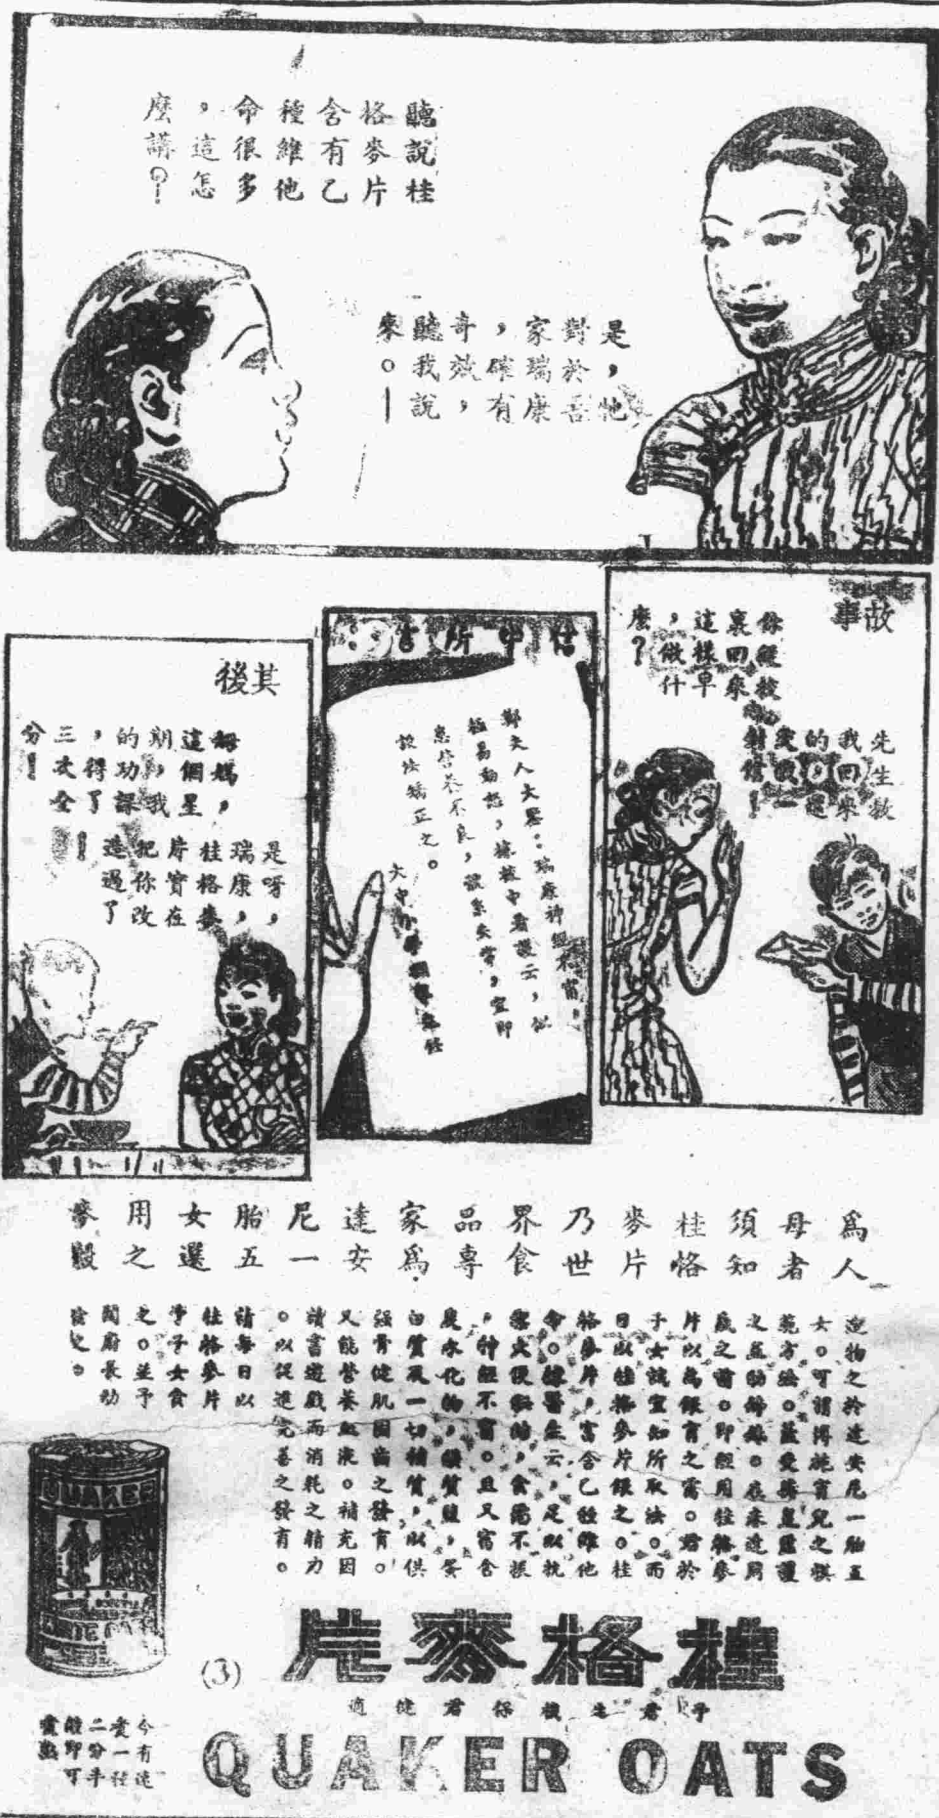 聽說桂
格麥片
含有乙
種維他
命很多
，這怎
麼講？
是，牠
對於吾
家瑞康
，確有
奇效，
聽我說
來。—
故事
你從校
裏回來
這樣早
，做什
麼？
先生教
我回來
的。還
信中所言：
鄭夫人大鑒：瑞康神經不甯，
極易動怒，據校中看護云，似
患營養不良，
設法矯正之。
其後
媽媽，
這個星
期，我
的功課
，得了
三次全
分！
是呀，
瑞康，
桂格麥
片實在
把你改
造過了
！
為人
母者
須知
桂格
麥片
乃世
界食
品專
家為
達安
尼一
胎五
女選
用之
麥穀
造物之於達安尼一胎五
女。可謂得施育兒之模
範方法。
歲之前。即經用桂格麥
片以為餵育之需。君於
子女誠宜知所取法。而
日以桂格麥片餵之。桂
格麥片，富含乙種維他
命。據醫生云，足以抗
，神經不甯。且又富含
炭水化物，礦質鹽，蛋
白質及一切補質，以供
強骨健肌固齒之發育。
又能營養血液。補充因
讀書遊戲而消耗之精力
。以促進完善之發育。
請每日以
桂格麥片
予子女食
之。並予
閤府長幼
食之。
QUAKER
桂格麥片
(3)
QUAKER OATS
今有速
煮一種
二分半
鐘即可
煮熟